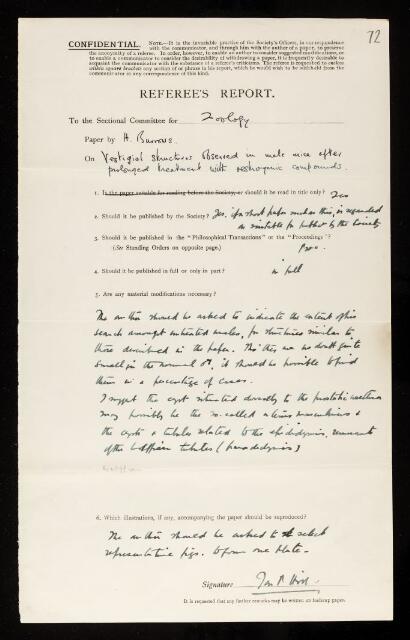 72
CONFIDENTIAL. NOTE.—It is the invariable practice of the Society's Officers, in correspondence
with the communicator, and through him with the author of a paper, to preserve
the anonymity of a referee. In order, however, to enable an author to consider suggested modifications, or
to enable a communicator to consider the desirability of withdrawing a paper, it is frequently desirable to
acquaint the communicator with the substance of a referee's criticisms. The referee is requested to enclose
within square brackets any section of or phrase in his report, which he would wish to be withheld from the
communicator in any correspondence of this kind.
REFEREE'S REPORT.
To the Sectional Committee for Zoology
Paper by H. Burrows.
On Vestigial structures observed in male mice after
prolonged treatment with oestrogenic compounds.
1. Is the paper suitable for reading before the Society, or should it be read in title only? Yes
2. Should it be published by the Society? Yes, if a short paper such as this, is regarded
as suitable for public by the Society
3. Should it be published in the "Philosophical Transactions" or the "Proceedings"?
(See Standing Orders on opposite page.) Proc.
4. Should it be published in full or only in part? in full
5. Are any material modifications necessary?
The author should be asked to indicate the extent of his
search amongst untreated males, for structures similar to
those described in the paper. Tho' they are no doubt quite
small in the normal ♂, it should be possible to find
them in a percentage of cases.
I suggest the cyst situated dorsally to the prostatic urethra
may possibly be the so-called uterus masculinus &
the cysts & tubules related to the epididymis, remnants
of the Wolffian tubules (paradidymis)
6. Which illustrations, if any, accompanying the paper should be reproduced?
The author should be asked to select
representative figs. to form one plate.
Signature Jas. P. Hill.
It is requested that any further remarks may be written on foolscap paper.